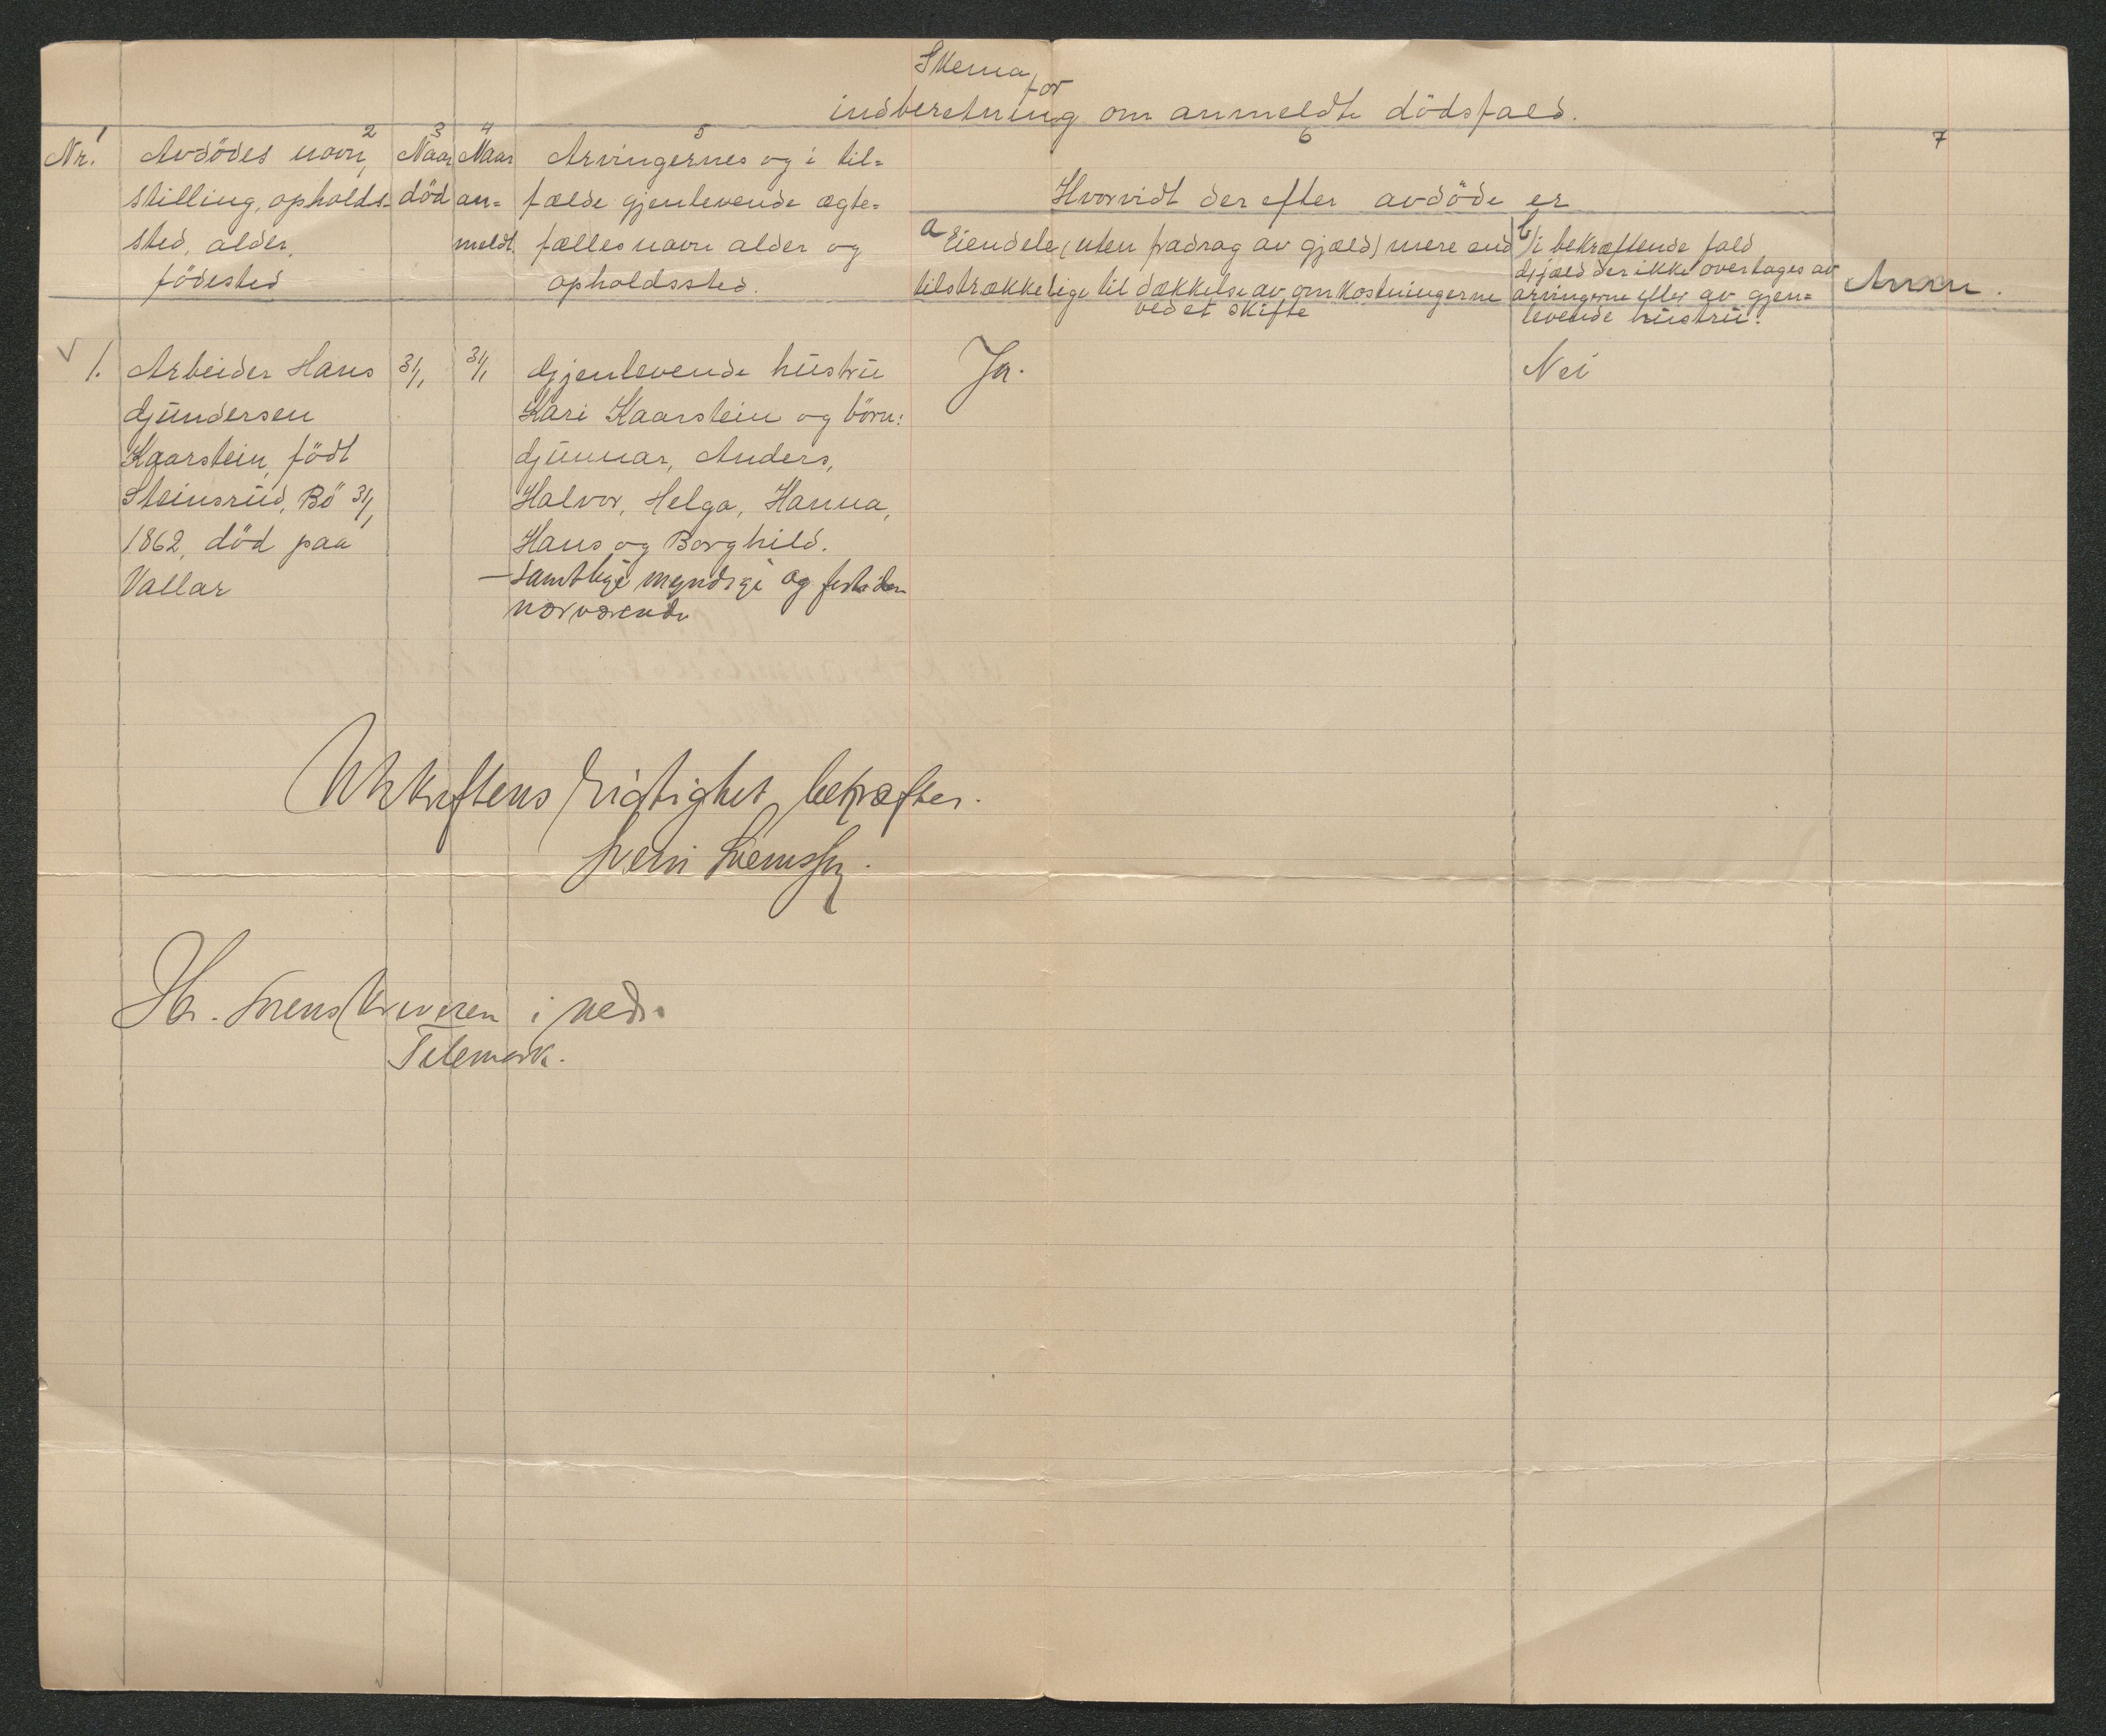 Skema
for
indberetning om anmeldte dödsfald.
1 2 3 4 5 6 7
Nr. Avdödes navn, Naar Naar Arvingernes og i til=
stilling, opholds- död an= fælde gjenlevende ægte= Hvorvidt der efter avdöde er
sted, alder, meldt. fælles navn alder og
födested opholdssted.
a Eiendele (uten fradrag av gjæld) mere end
tilstrækkelige til dækkelse av omkostningerne
ved et skifte
b/ i bekræftende fald
Gjæld der ikke overtages av
arvingerne eller av gjen=
levende hustru.
Anm.
√ 1. Arbeider Hans 31/1 31/1 Gjenlevende hustru Ja. Nei
Gundersen Kari Kaarstein og börn:
Kaarstein, födt Gunnar, Anders,
Steinsrud, Bö 31/1 Halvor, Helga, Hanna,
1862, död paa Hans og Borghild.
Vallar — Samtlige myndige og
nærværende
Utskriftens rigtighet bekræftes.
Hr. Sorenskriveren i nedr.
Telemark.